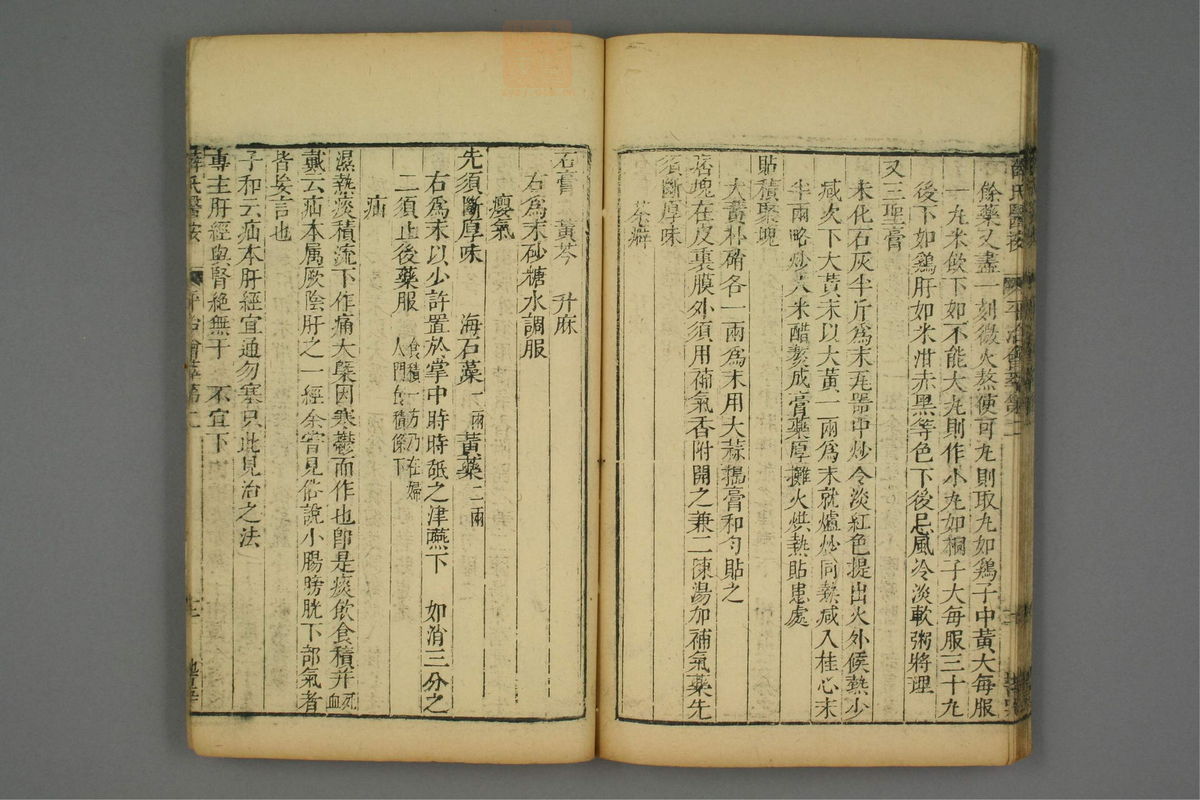 薛氏醫按 平治會萃卷二
餘藥又盡一刻微火熬使可丸則取丸如鷄子中黃大每服
一丸米飲下如不能大丸則作小丸如桐子大每服三十丸
後下如鷄肝如米泔赤黑等色下後忌風冷淡軟粥將理
又三聖膏
末化石灰半斤爲末尾噐中炒令淡紅色提出火外候熱少
减次下大黃末以大黃一兩爲末就爐炒同熱减入桂心末
半兩略炒入米醋熬成膏藥厚攤火烘熱貼患處
貼積聚塊
大黃朴硝各一兩爲末用大蒜搗膏和勻貼之
痞塊在皮裏膜外須用補氣香附開之兼二陳湯加補氣藥先
須斷厚味
茶癖
石膏 黃芩 升麻
右爲末砂糖水調服
癭氣
先須斷厚味 海石藻一兩 黃藥二兩
右爲末以少許置於掌中時時舐之津嚥下 如消三分之
二須止後藥服 食積一方乃在婦人門食積條下
疝
濕熱痰積流下作痛大槩因寒鬱而作也卽是痰飲食積并死血
戴云疝本属厥陰肝之一經余嘗見俗說小腸膀胱下部氣者
皆妄言也
子和云疝本肝經宜通勿塞只此見治之法
專主肝經與腎絶無干 不宜下
薛氏醫按 平治會萃卷二